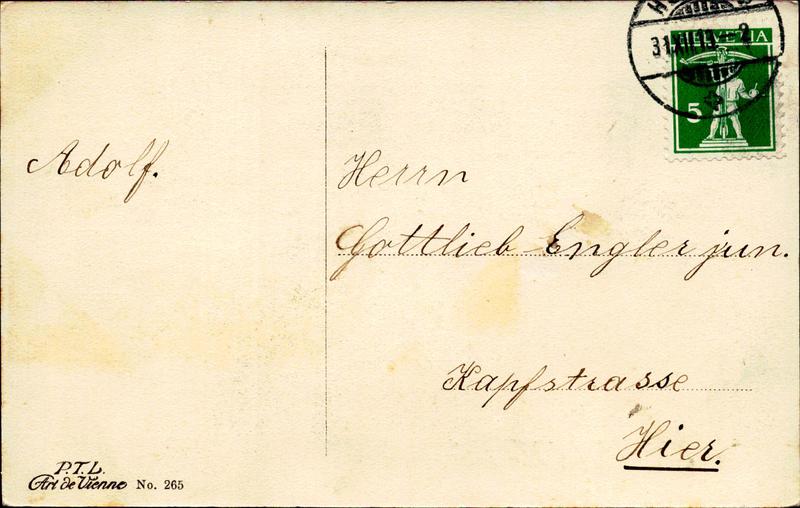 HELVETIA
31.XII.13-2
5
Adolf.
Herrn
Gottlieb Engler jun.
Kapfstrasse
Hier.
P.T.L.
Art de Vienne No. 265